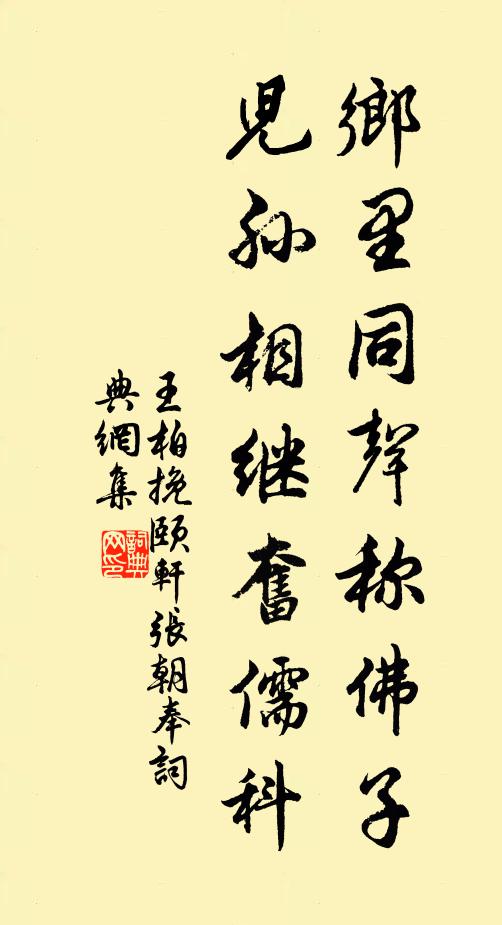 鄉里同聲称佛子
児孫相継奮儒科
王柏挽頤軒張朝奉詞
典網集
詞典
网印